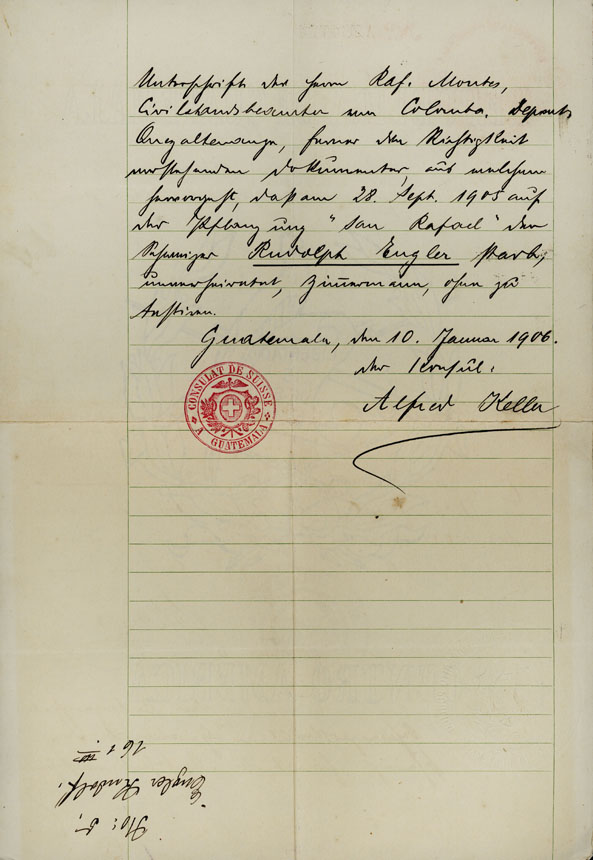 Unterschrift des Herrn Raf. Montes,
Civilstandsbeamter von Colomba, Depart.
Quezaltenango, ferner die Richtigkeit
vorstehenden Dokumentes, aus welchem
hervorgeht, daß am 28. Sept. 1905 auf
der Pflanzung "San Rafael" der
Schweizer Rudolph Engler starb,
unverheiratet, Zimmermann, ohne zu
testiren.
Guatemala, den 10. Januar 1906.
der Konsul:
Alfred Keller
CONSULAT DE SUISSE
A GUATEMALA
No: 5,
Engler Rudolf.
16 1